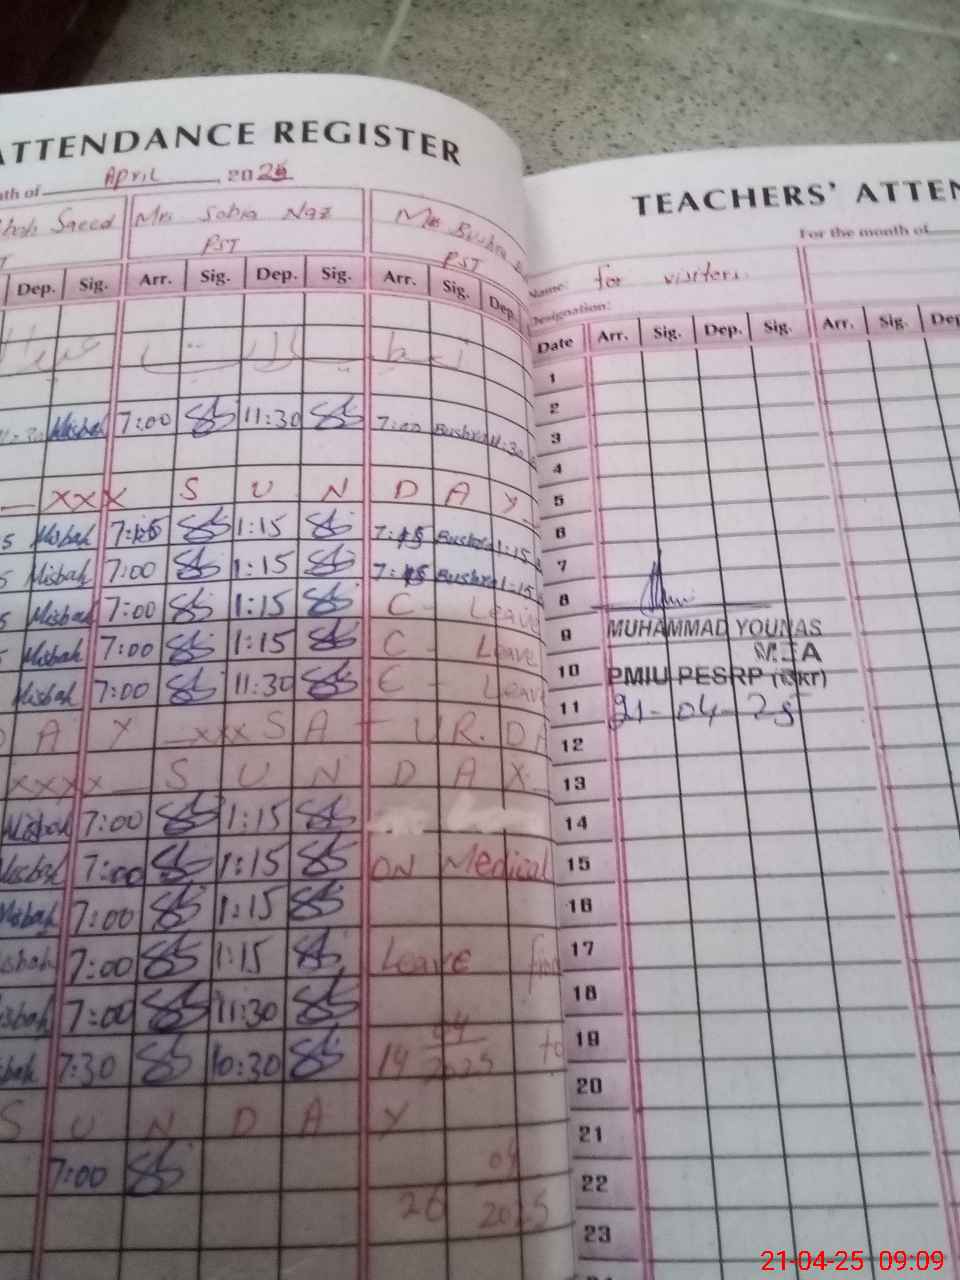 ATTENDANCE REGISTER
th of April 2025
Saeed Mrs Sobia Naz Mrs Bushra
PST PST
Dep. Sig. Arr. Sig. Dep. Sig. Arr. Sig. Dep.
Misbah 7:00 SS 11:30 SS 7:00 Bushra 11:30
xxx S U N D A Y
Misbah 7:15 SS 1:15 SS 7:15 Bushra 1:15
Misbah 7:00 SS 1:15 SS 7:15 Bushra 1:15
Misbah 7:00 SS 1:15 SS C - Leave
Misbah 7:00 SS 1:15 SS C - Leave
Misbah 7:00 SS 11:30 SS C - Leave
D A Y xxx S A T U R D A
xxxx S U N D A Y
Misbah 7:00 SS 1:15 SS
Misbah 7:00 SS 1:15 SS ON Medical
Misbah 7:00 SS 1:15 SS
Misbah 7:00 SS 1:15 SS Leave from
Misbah 7:00 SS 11:30 SS
Misbah 7:30 SS 10:30 SS 14 04/2025 to
S U N D A Y
7:00 SS
26 04/2025
TEACHERS' ATTEN
For the month of
Name: for visitors
Designation:
Date Arr. Sig. Dep. Sig. Arr. Sig. Dep
1
2
3
4
5
6
7
8
9 MUHAMMAD YOUNAS
M.E.A
10 PMIU PESRP (Bkr)
11 21-04-25
12
13
14
15
16
17
18
19
20
21
22
23
21-04-25 09:09